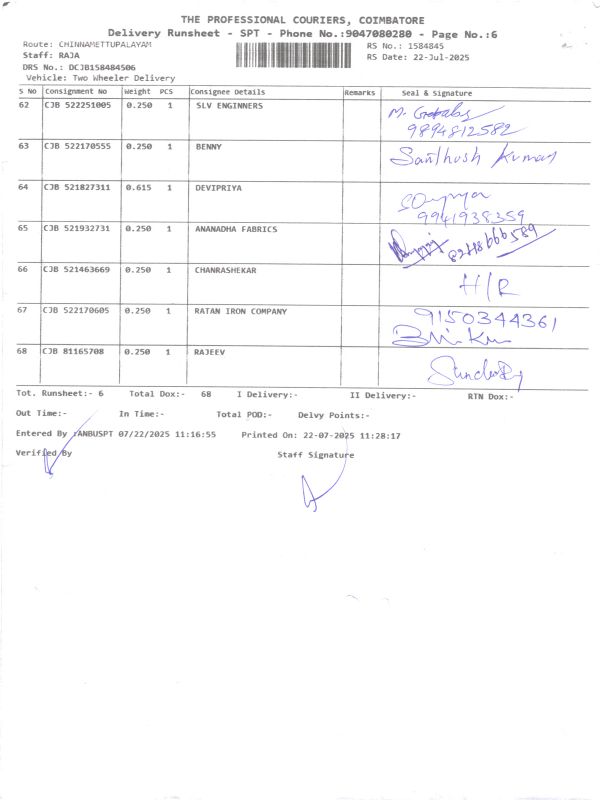 THE PROFESSIONAL COURIERS, COIMBATORE
Delivery Runsheet - SPT - Phone No.:9047080280 - Page No.:6
Route: CHINNAMETTUPALAYAM
RS No.: 1584845
Staff: RAJA
RS Date: 22-Jul-2025
DRS No.: DCJB158484506
Vehicle: Two Wheeler Delivery
S No Consignment No Weight PCS Consignee Details Remarks Seal & Signature
62 CJB 522251005 0.250 1 SLV ENGINNERS
9894812582
63 CJB 522170555 0.250 1 BENNY Santhosh Kumar
64 CJB 521827311 0.615 1 DEVIPRIYA
9941938359
65 CJB 521932731 0.250 1 ANANADHA FABRICS
66 CJB 521463669 0.250 1 CHANRASHEKAR H/R
67 CJB 522170605 0.250 1 RATAN IRON COMPANY 9150344361
68 CJB 81165708 0.250 1 RAJEEV
Tot. Runsheet:- 6 Total Dox:- 68 I Delivery:- II Delivery:- RTN Dox:-
Out Time:- In Time:- Total POD:- Delvy Points:-
Entered By :ANBUSPT 07/22/2025 11:16:55 Printed On: 22-07-2025 11:28:17
Verified By Staff Signature